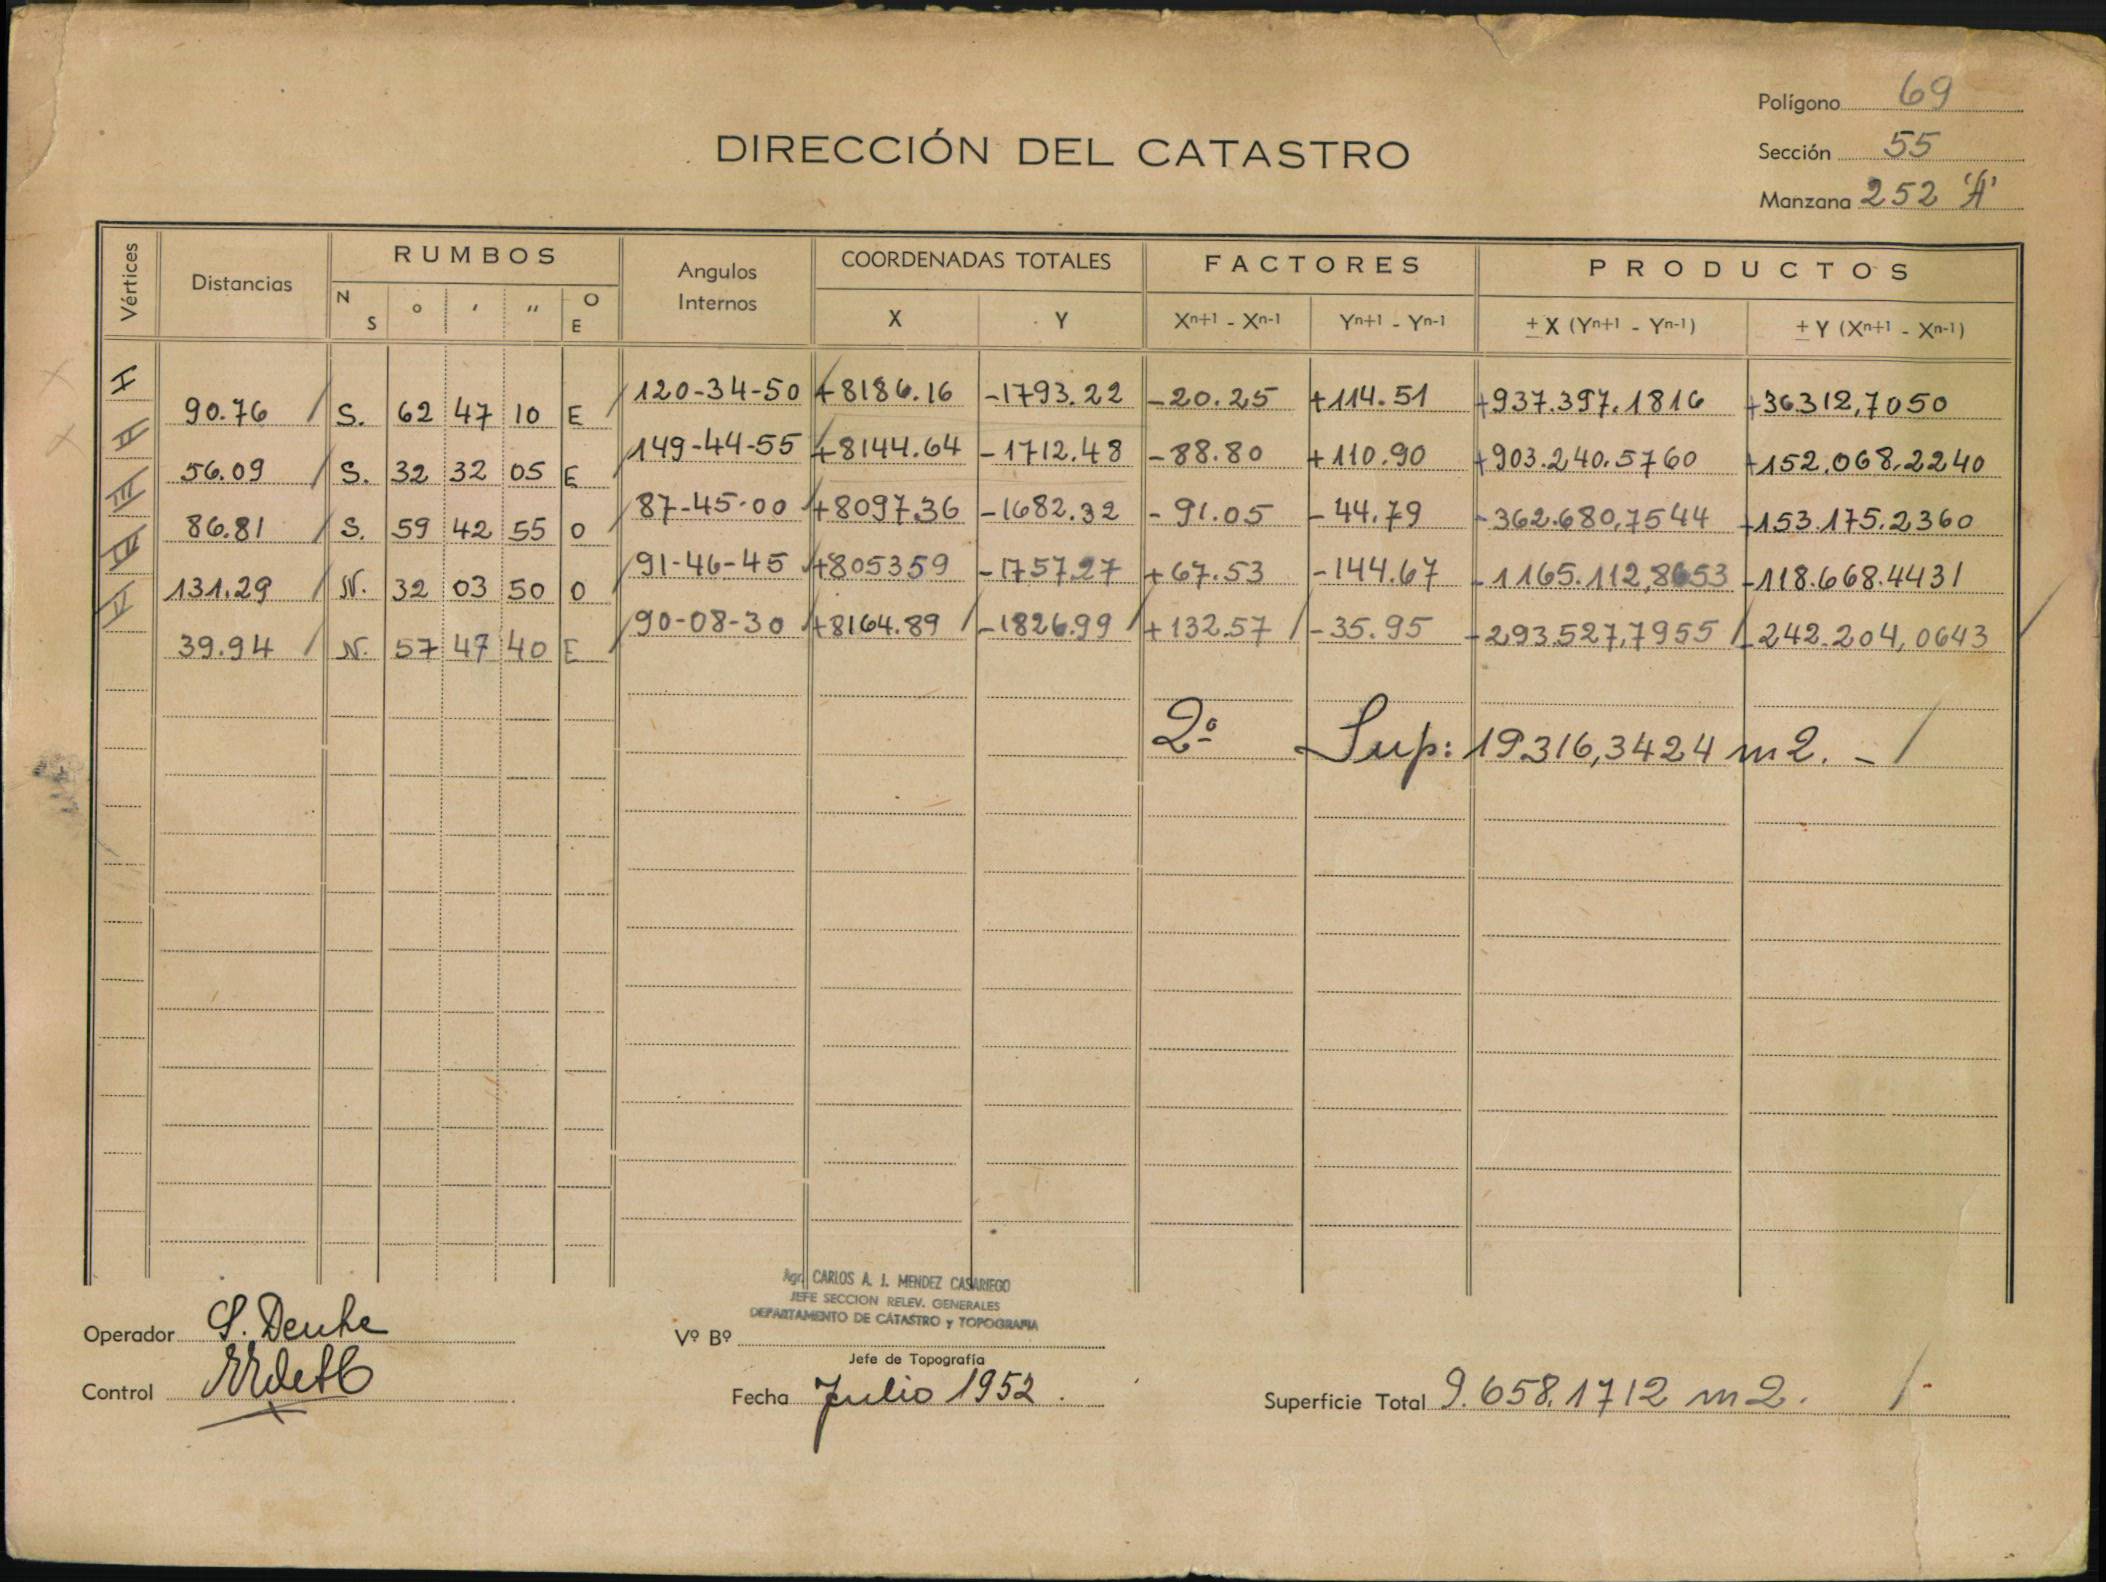 Polígono 69
DIRECCIÓN DEL CATASTRO
Sección 55
Manzana 252 "A"
Vértices Distancias RUMBOS Angulos Internos COORDENADAS TOTALES FACTORES PRODUCTOS
N S ° ' " O E X Y Xn+1 - Xn-1 Yn+1 - Yn-1 ± X (Yn+1 - Yn-1) ± Y (Xn+1 - Xn-1)
I 120-34-50 +8186.16 -1793.22 -20.25 +114.51 +937.397.1816 +36.312,7050
90.76 S. 62 47 10 E
II 149-44-55 +8144.64 -1712.48 -88.80 +110.90 +903.240.5760 +152.068.2240
56.09 S. 32 32 05 E
III 87-45-00 +8097.36 -1682.32 -91.05 -44.79 -362.680,7544 +153.175.2360
86.81 S. 59 42 55 O
IV 91-46-45 +8053.59 -1757.27 +67.53 -144.67 -1165.112,8653 -118.668.4431
131.29 N. 32 03 50 O
V 90-08-30 +8164.89 -1826.99 +132.57 -35.95 -293.527,7955 -242.204,0643
39.94 N. 57 47 40 E
2º Sup: 19316,3424 m2. -
Agr. CARLOS A. J. MENDEZ CASARIEGO
JEFE SECCION RELEV. GENERALES
DEPARTAMENTO DE CATASTRO y TOPOGRAFIA
Operador
Vº Bº
Jefe de Topografía
Control
Fecha Julio 1952.
Superficie Total 9.658.1712 m2.